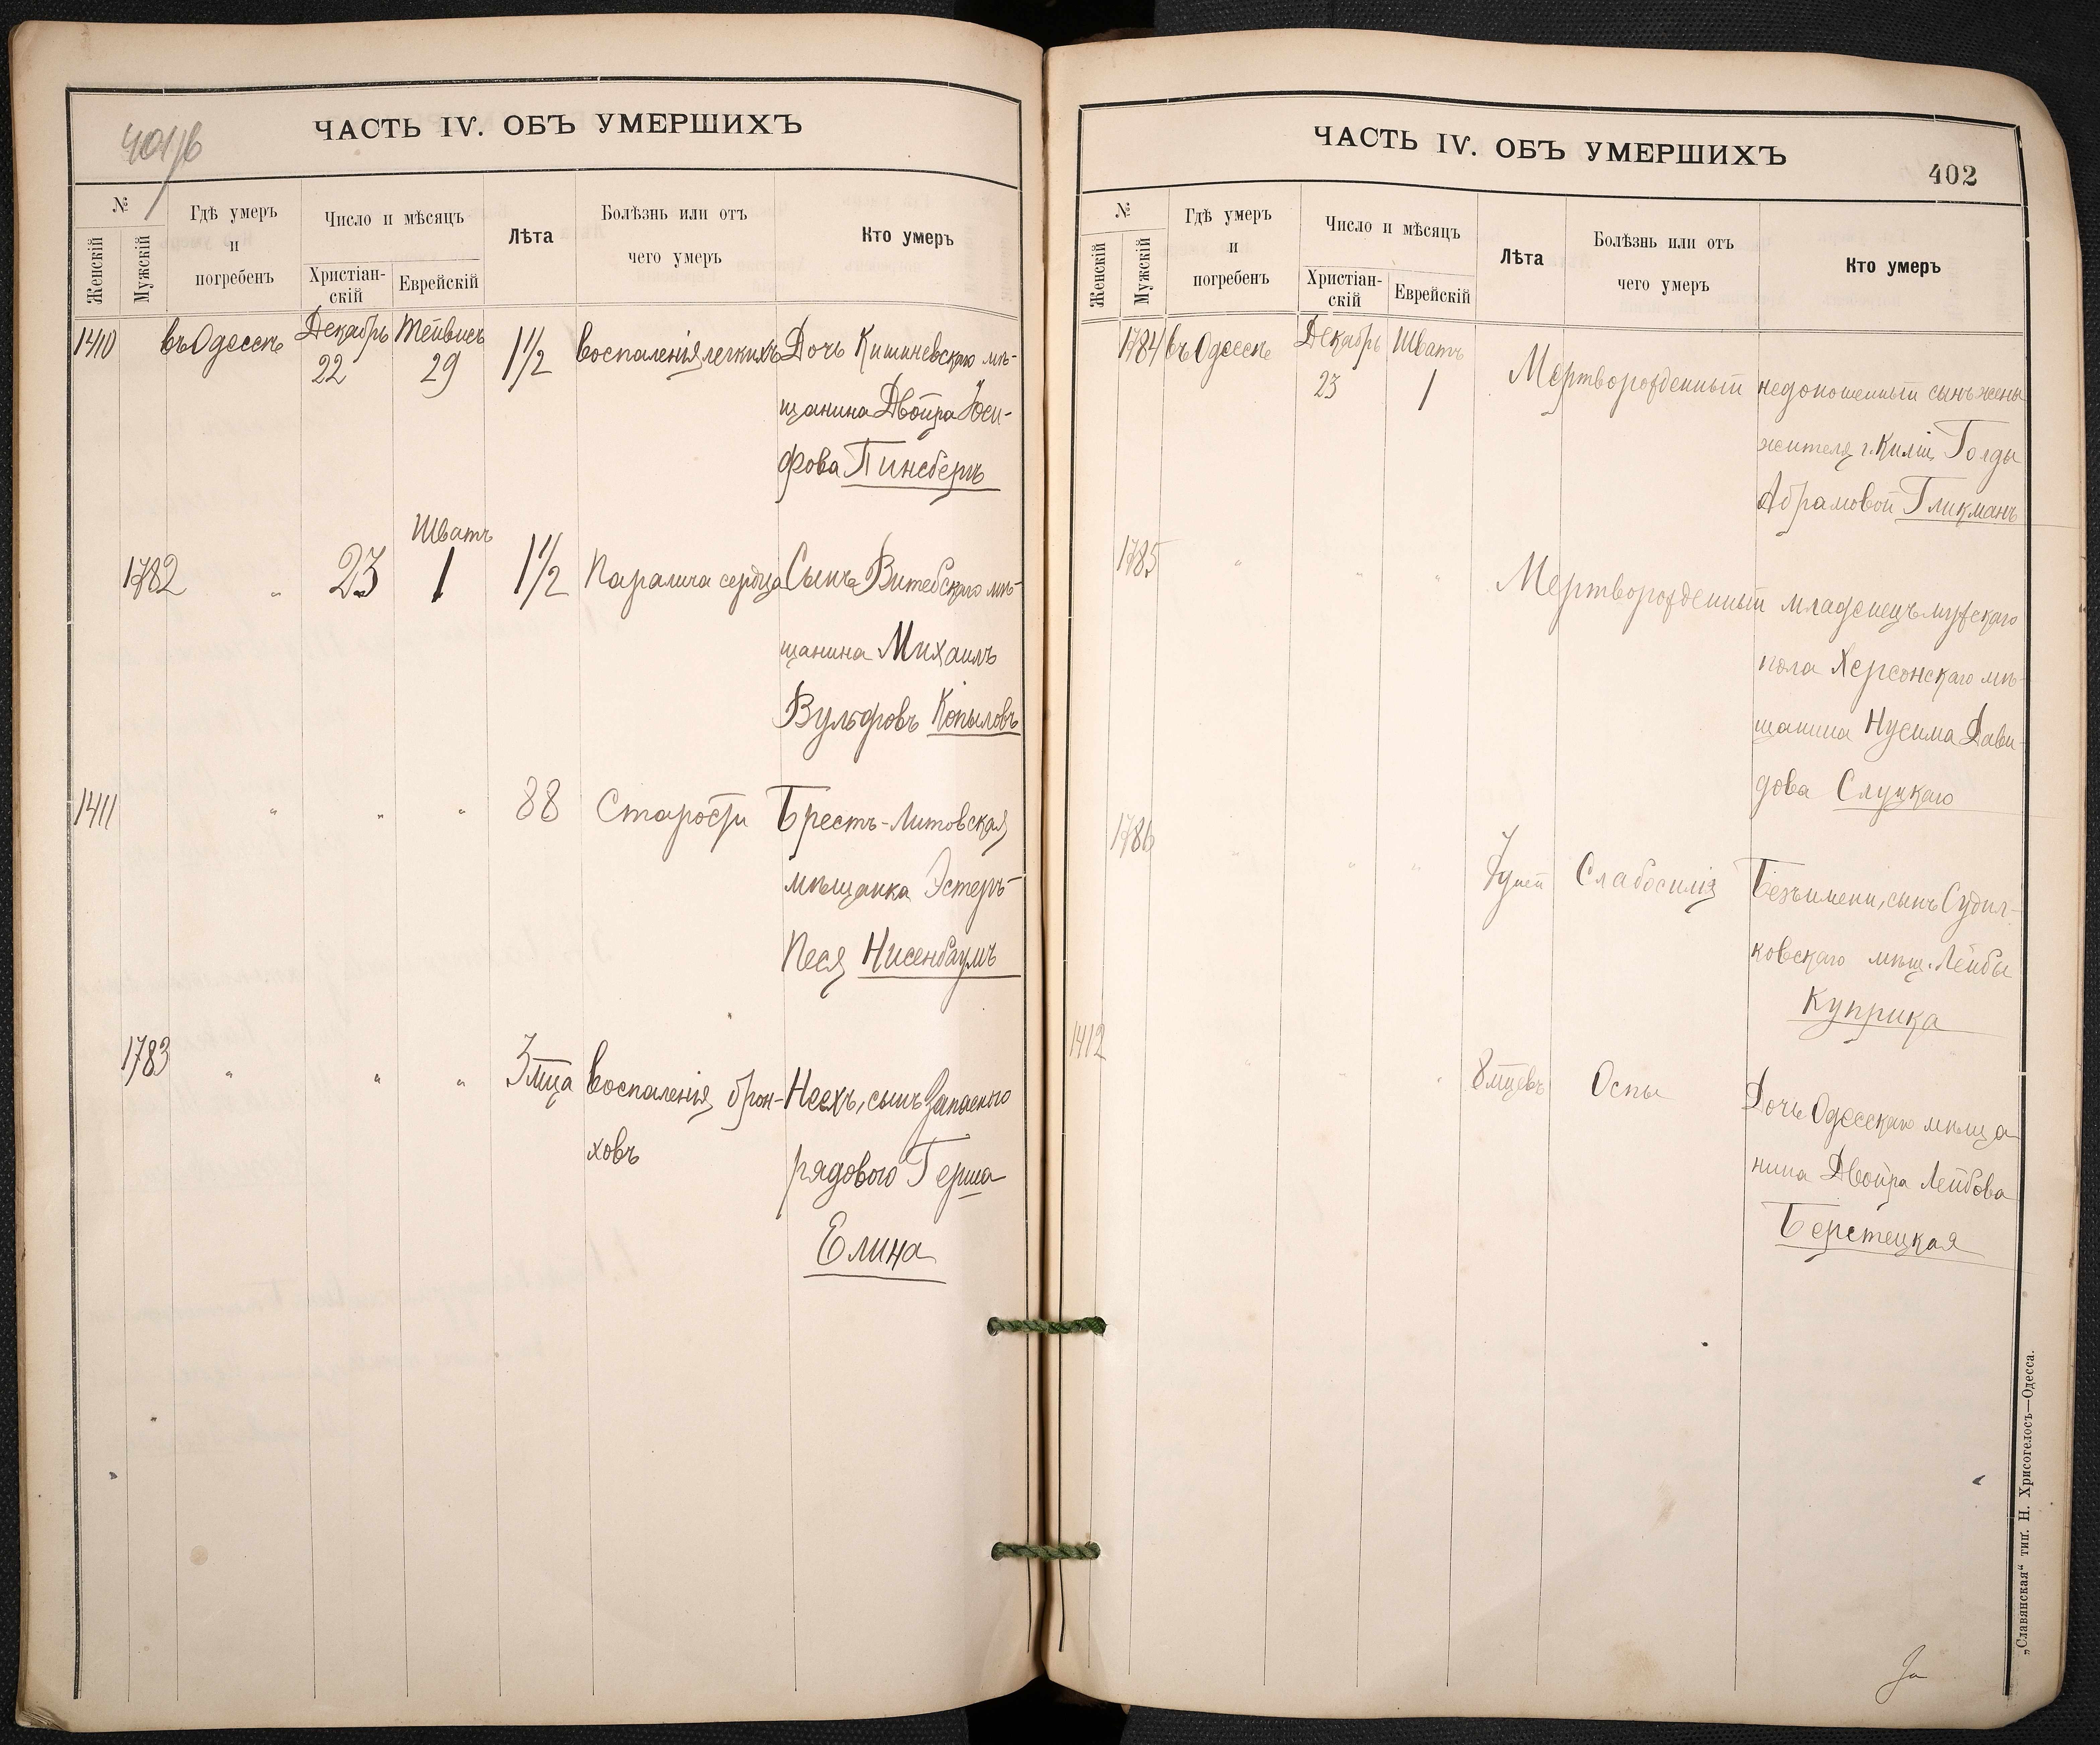 401/б
ЧАСТЬ IV. ОБЪ УМЕРШИХЪ
№
Женскій
Мужскій
Гдѣ умеръ
и
погребенъ
Число и мѣсяцъ
Христіан-
скій
Еврейскій
Лѣта
Болѣзнь или отъ
чего умеръ
Кто умеръ
1410 въ Одессѣ Декабрь 22 Тейвисъ 29 1 1/2 воспаленія легкихъ Дочь Кишиневскаго мѣ-
щанина Двойра Іоси-
фова Гинсбергъ
Шватъ
1782 " 23 1 1 1/2 Паралича сердца Сынъ Витебскаго мѣ-
щанина Михаилъ
Вульфовъ Копыловъ
1411 " " " 88 Старости Брестъ-Литовская
мѣщанка Эстеръ-
Песя Нисенбаумъ
1783 " " " 3 мца воспаленія брон- Неехъ, сынъ Запаснаго
ховъ
рядового Герша
Елина
ЧАСТЬ IV. ОБЪ УМЕРШИХЪ
402
№
Женскій
Мужскій
Гдѣ умеръ
и
погребенъ
Число и мѣсяцъ
Христіан-
скій
Еврейскій
Лѣта
Болѣзнь или отъ
чего умеръ
Кто умеръ
1784 въ Одессѣ Декабрь 23 Шватъ 1 Мертворожденный недоношенный сынъ жены
жителя г. Киліи Голды
Абрамовой Гликманъ
1785 " " " Мертворожденный младенецъ мужскаго
пола Херсонскаго мѣ-
щанина Нусима Дави-
дова Слуцкаго
1786 " " " 7 дней Слабосилія Безъ имени, сынъ Судил-
ковскаго мѣщ. Лейбы
Куприка
1412 " " " 8 мцевъ Оспы Дочь Одесскаго мѣща
нина Двойра Лейбова
Берстецкая
„Славянская“ тип. Н. Хрисогелосъ—Одесса.